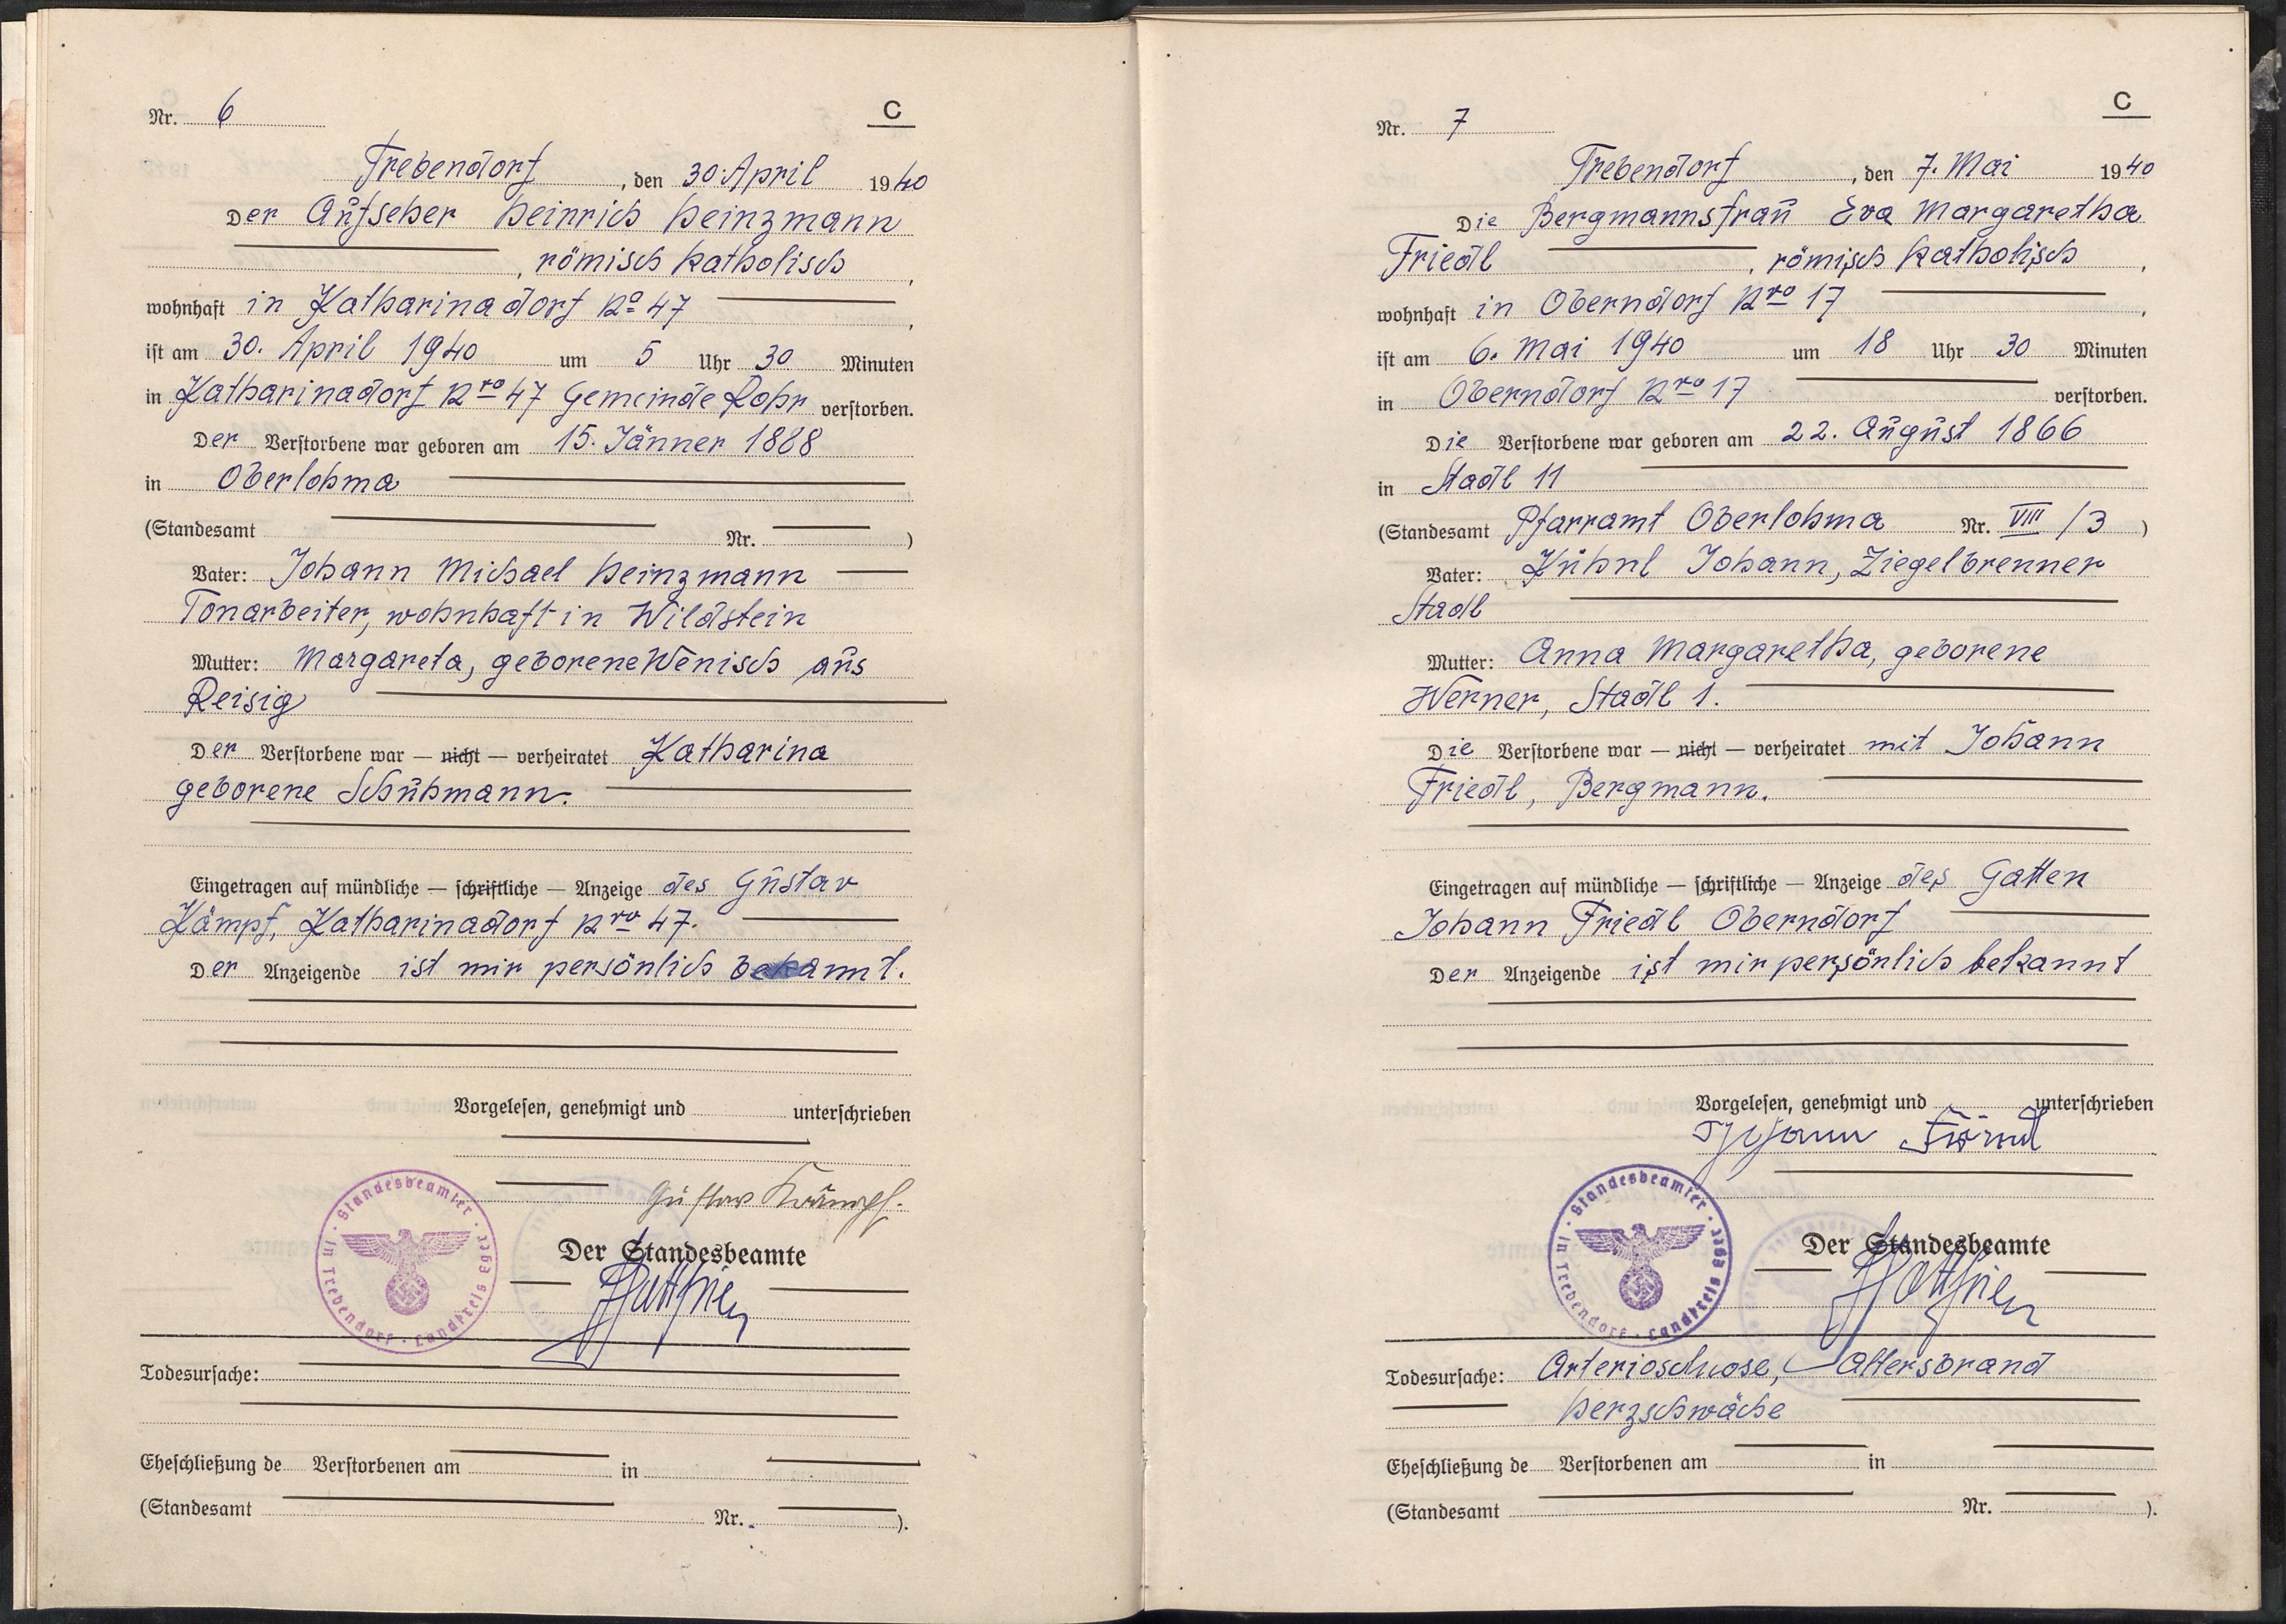 Nr. 6
C
Trebendorf, den 30. April 1940
Der Aufseher Heinrich Heinzmann
, römisch katholisch,
wohnhaft in Katharinadorf No 47,
ist am 30. April 1940 um 5 Uhr 30 Minuten
in Katharinadorf Nro 47 Gemeinde Rohr verstorben.
Der Verstorbene war geboren am 15. Jänner 1888
in Oberlohma
(Standesamt Nr. )
Vater: Johann Michael Heinzmann
Tonarbeiter, wohnhaft in Wildstein
Mutter: Margareta, geborene Wenisch aus
Reisig
Der Verstorbene war — nicht — verheiratet Katharina
geborene Schuhmann.
Eingetragen auf mündliche — schriftliche — Anzeige des Gustav
Kämpf, Katharinadorf Nro 47.
Der Anzeigende ist mir persönlich bekannt.
Vorgelesen, genehmigt und unterschrieben
Gustav
Der Standesbeamte
Standesbeamter · in Trebendorf · Landkreis Eger
Todesursache:
Eheschließung de Verstorbenen am in
(Standesamt Nr. ).
Nr. 7
C
Trebendorf, den 7. Mai 1940
Die Bergmannsfrau Eva Margaretha
Friedl, römisch katholisch,
wohnhaft in Oberndorf Nro 17,
ist am 6. Mai 1940 um 18 Uhr 30 Minuten
in Oberndorf Nro 17 verstorben.
Die Verstorbene war geboren am 22. August 1866
in Stadl 11
(Standesamt Pfarramt Oberlohma Nr. VIII / 3 )
Vater: Kühnl Johann, Ziegelbrenner
Stadl
Mutter: Anna Margaretha, geborene
Werner, Stadl 1.
Die Verstorbene war — nicht — verheiratet mit Johann
Friedl, Bergmann.
Eingetragen auf mündliche — schriftliche — Anzeige des Gatten
Johann Friedl Oberndorf
Der Anzeigende ist mir persönlich bekannt
Vorgelesen, genehmigt und unterschrieben
Johann
Der Standesbeamte
Standesbeamter · in Trebendorf · Landkreis Eger
Todesursache: Altersbrand
Herzschwäche
Eheschließung de Verstorbenen am in
(Standesamt Nr. ).